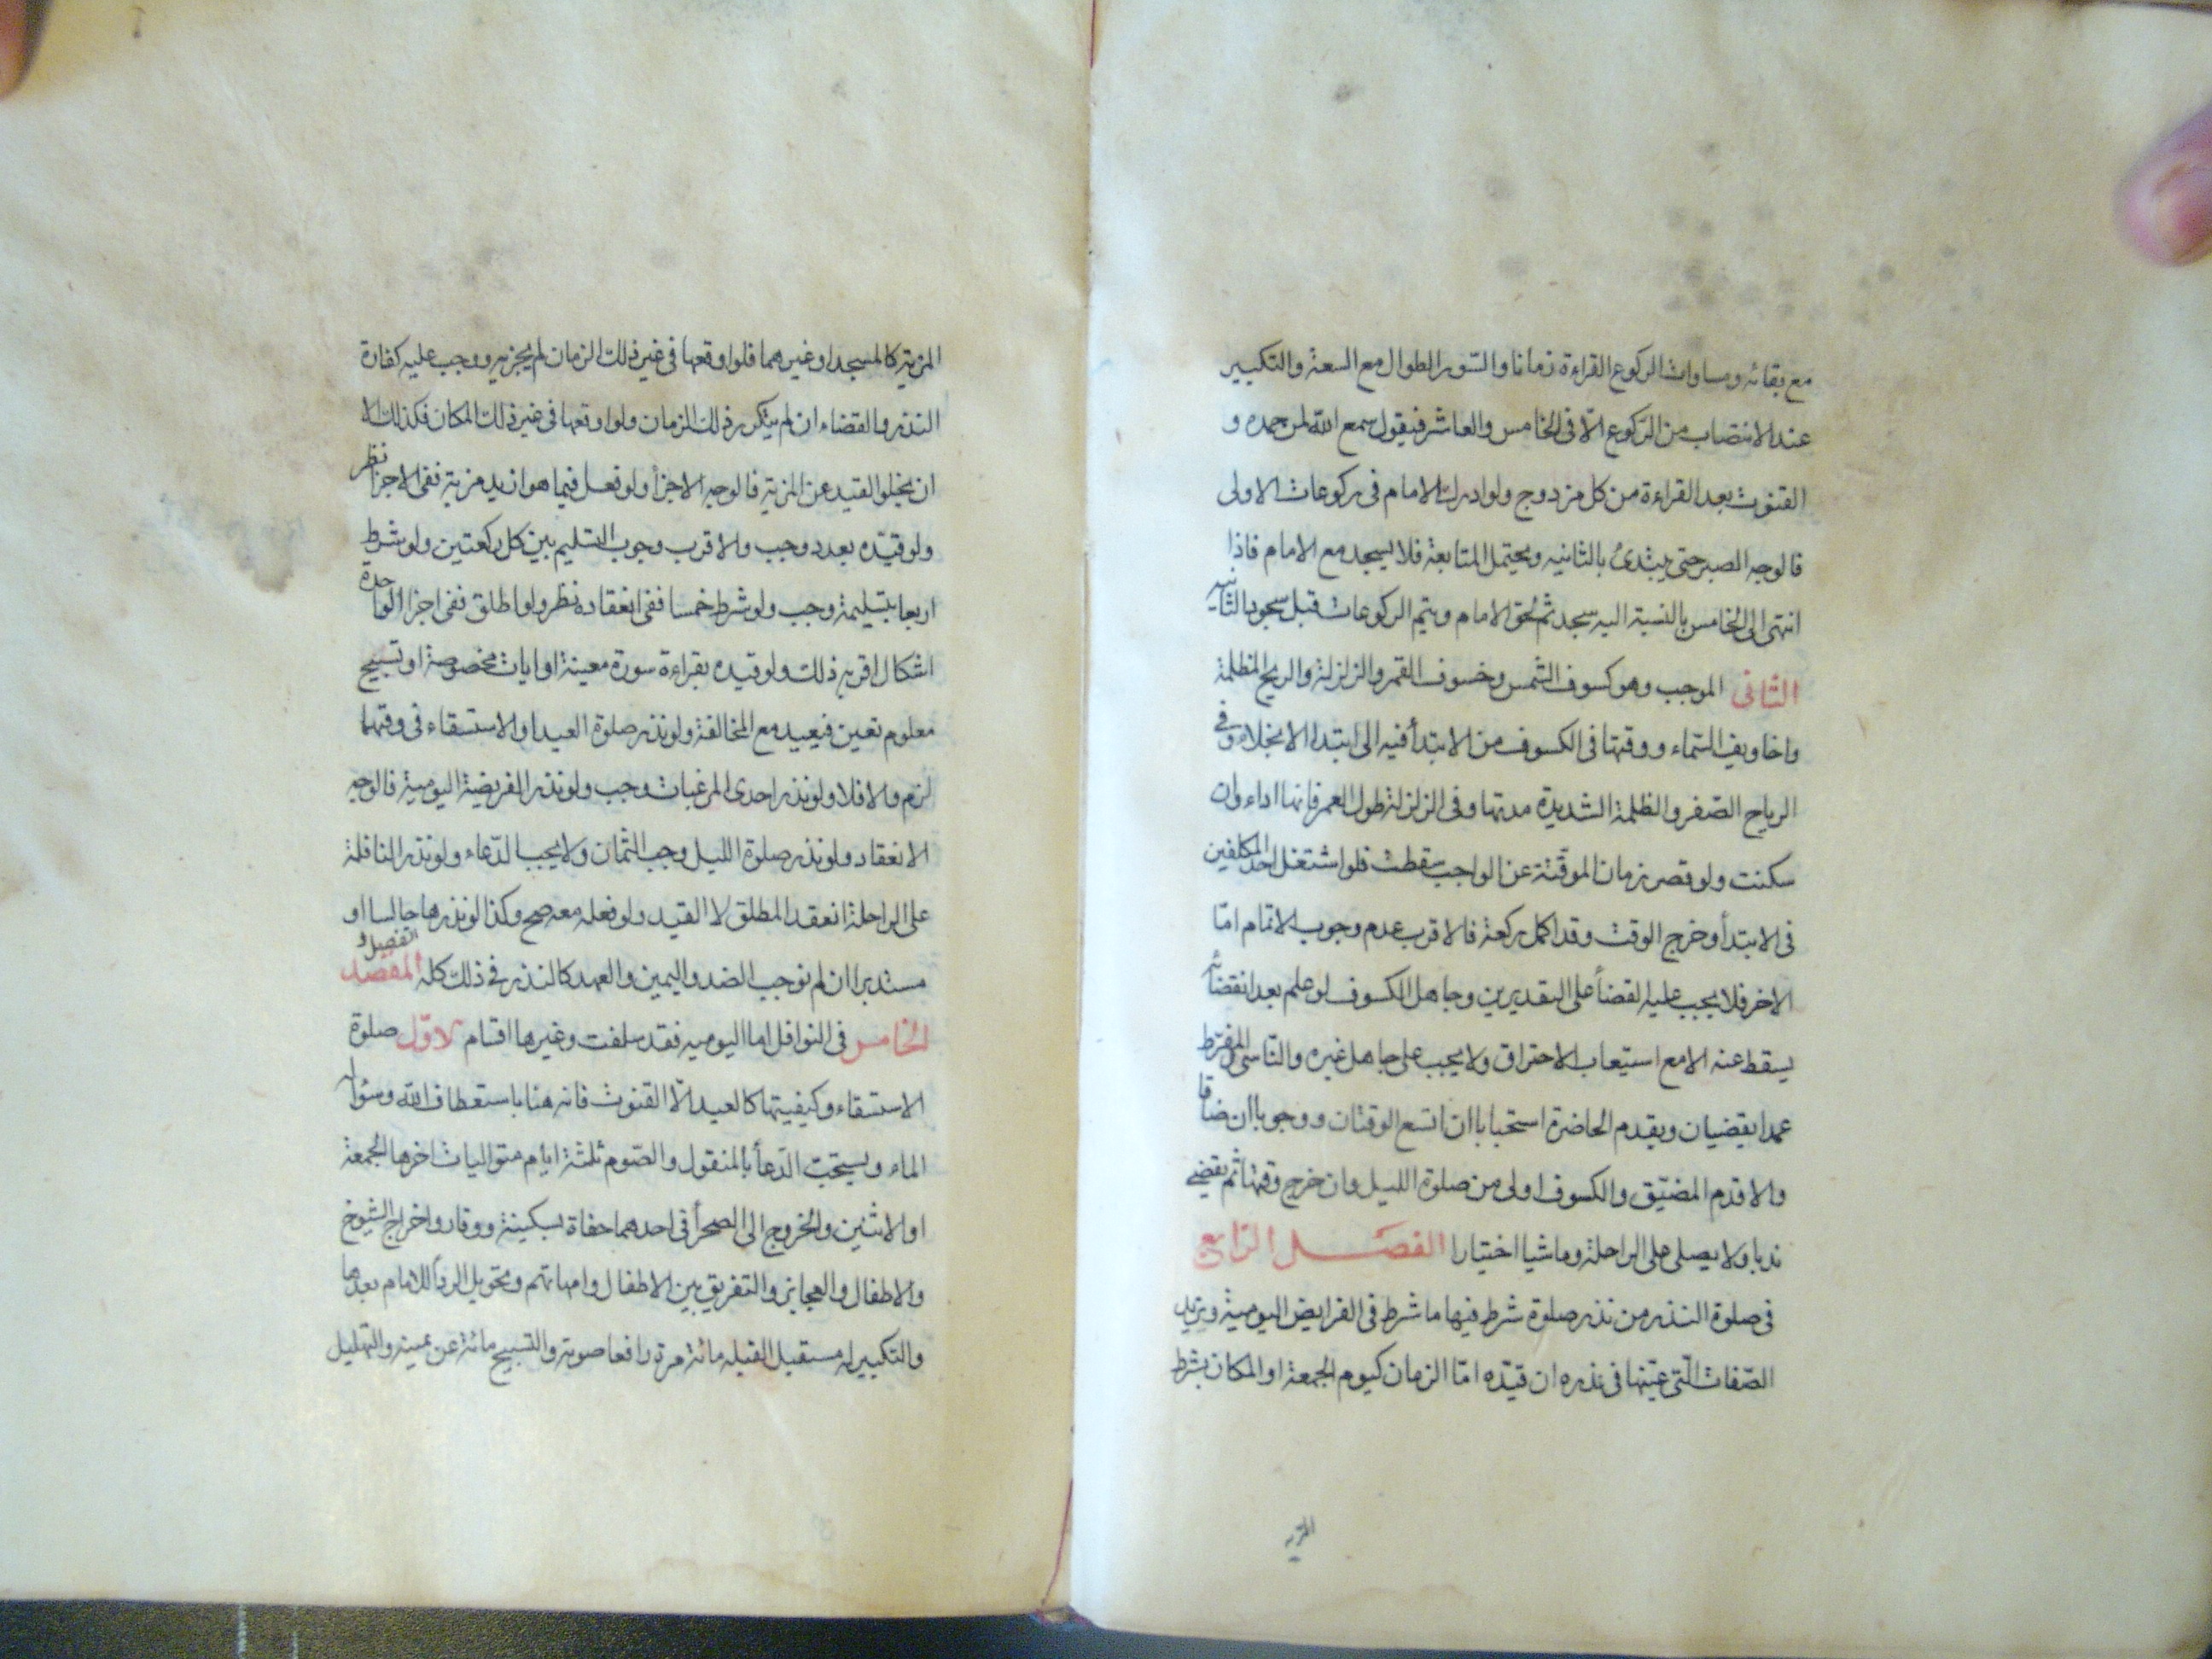 مع بقائه ومساوات الركوع القراءة زمانا والسور الطوال مع السعة والتكبير
عند الانتصاب من الركوع الا فى الخامس والعاشر فيقول سمع الله لمن حمده و
القنوت بعد القراءة من كل مزدوج ولو ادرك الامام فى ركوعات الاولى
فالوجه الصبر حتى يبتدئ بالثانيه ويحتمل المتابعة فلا يسجد مع الامام فاذا
انتهى الى الخامس بالنسبة اليه سجد ثم لحق الامام ويتم الركوعات قبل سجود الثانيه
الثانى الموجب وهو كسوف الشمس وخسوف القمر والزلزلة والريح المظلمة
واخاويف السماء ووقتها فى الكسوف من الابتدأ فيه الى ابتدا الانجلاء وفى
الرياح الصفر والظلمة الشديدة مدتها وفى الزلزلة طول العمر فانها اداء وان
سكنت ولو قصر زمان الموقتة عن الواجب سقطت فلو اشتغل احد المكلفين
فى الابتدأ وخرج الوقت وقد اكمل ركعة فالاقرب عدم وجوب الاتمام امّا
الاخر فلا يجب عليه القضأ على التقديرين وجاهل الكسوف لو علم بعد انقضائه
يسقط عنه الا مع استيعاب الاحتراق ولا يجب على جاهل غيره والناسى والمفرّط
عمدا يقضيان ويقدم الحاضرة استحبابا ان اتسع الوقتان ووجوبا ان ضاقا
والا قدم المضيّق والكسوف اولى من صلوة الليل وان خرج وقتها ثم يقضى
ندبا ولا يصلى على الراحلة وماشيا اختيارا الفصل الرابع
فى صلوة النذر من نذر صلوة شرط فيها ما شرط فى الفرايض اليومية ويزيد
الصّفات الّتى عيّنها فى نذره ان قيّده امّا الزمان كيوم الجمعة او المكان بشرط
المزية
المزية كالمسجد او غيرهما فلو اوقعها فى غير ذلك الزمان لم يجزيه ووجب عليه كفارة
النذر والقضاء ان لم يتكرر ذلك الزمان ولو اوقعها فى غير ذلك المكان فكذلك الا
ان يخلو القيد عن المزية فالوجه الاجزأ ولو فعل فيما هو ازيد مزية ففى الاجزا نظر
ولو قيّده بعدد وجب والاقرب وجوب التسليم بين كل ركعتين ولو شرط
اربعا بتسليمة وجب ولو شرط خمسا ففى انعقاده نظر ولو اطلق ففى اجزا الواحدة
اشكال اقربه ذلك ولو قيده بقراءة سورة معينة او ايات مخصوصة او تسبيح
معلوم تعين فيعيد مع المخالفة ولو نذر صلوة العيد او الاستسقاء فى وقتهما
لزم والا فلا ولو نذر احدى المرغبات وجب ولو نذر الفريضة اليومية فالوجه
الانعقاد ولو نذر صلوة الليل وجب الثمان ولا يجب الدّعاء ولو نذر النافلة
على الراحلة انعقد المطلق لا القيد ولو فعله معه صح وكذا لو نذرها جالسا او
مستدبرا ان لم نوجب الضد واليمين والعهد كالنذر فى ذلك كله التفصيل و المقصد
الخامس فى النوافل اما اليوميه فقد سلفت وغيرها اقسام الاوّل صلوة
الاستسقاء وكيفيتها كالعيد الّا القنوت فانه هنا باستعطاف الله وسؤاله
الماء ويستحبّ الدّعأ بالمنقول والصّوم ثلثة ايام متواليات اخرها الجمعة
او الاثنين والخروج الى الصحرأ فى احدهما حفاة بسكينة ووقار واخراج الشيوخ
والاطفال والعجايز والتفريق بين الاطفال وامهاتهم وتحويل الردأ للامام بعدها
والتكبير له مستقبل القبله مائة مرة رافعا صوته والتسبيح مائة عن يمينه والتهليل